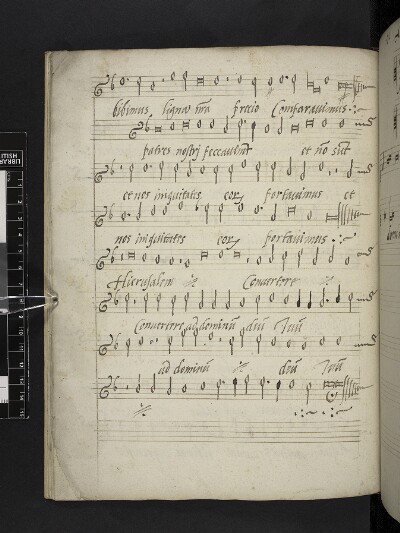 bibimus ligna nrã precio Comparauimus
patres nostrj peccauerũt et nõ sũt
et nos iniquitates eorȝ portauimus et
nos iniquitates eorȝ portauimus
Hierusalem Conuertere
Conuertere ad dominũ deũ Tuũ
ad dominũ deũ Tuũ